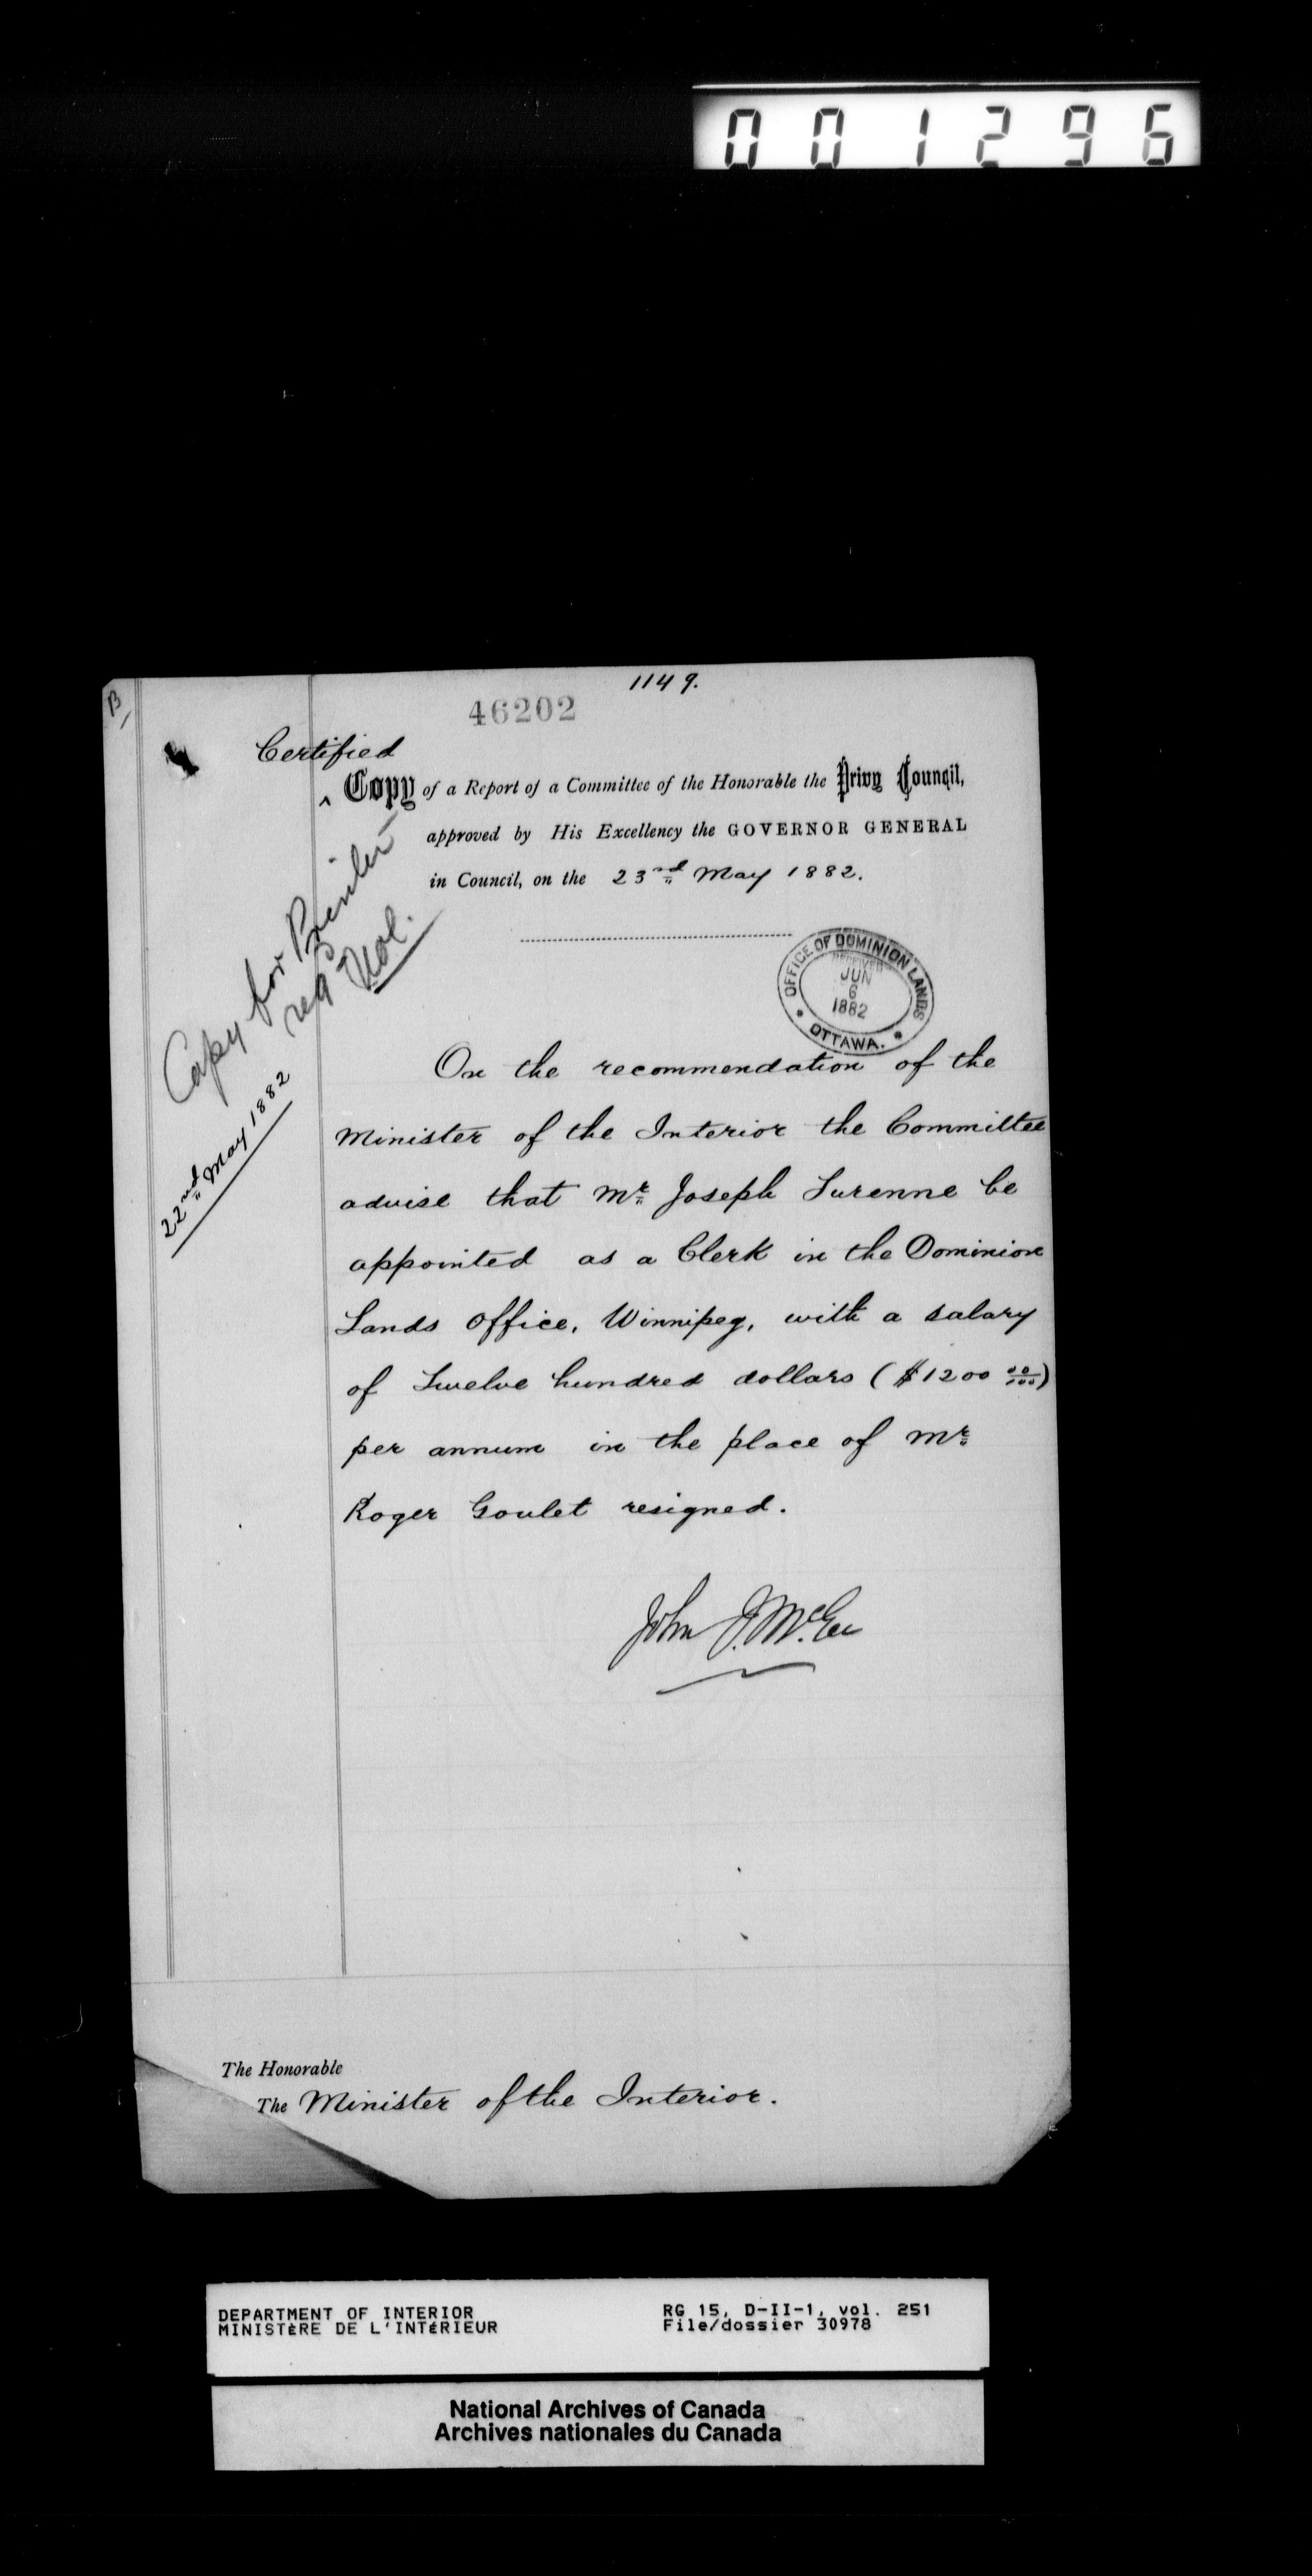 001296
1149.
B/
46202
Certified
^ Copy of a Report of a Committee of the Honorable the Privy Council,
approved by His Excellency the GOVERNOR GENERAL
in Council, on the 23rd May 1882.
Copy for
reg
22nd May 1882
OFFICE OF DOMINION LANDS
RECEIVED
JUN
6
1882
OTTAWA.
On the recommendation of the
Minister of the Interior the Committee
advise that Mr Joseph Turenne be
appointed as a Clerk in the Dominion
Lands Office, Winnipeg, with a salary
of Twelve hundred dollars ($1200 00/100)
per annum in the place of Mr
Roger Goulet resigned.
John J. McGee
The Honorable
The Minister of the Interior.
DEPARTMENT OF INTERIOR
MINISTÈRE DE L'INTÉRIEUR
RG 15, D-II-1, vol. 251
File/dossier 30978
National Archives of Canada
Archives nationales du Canada